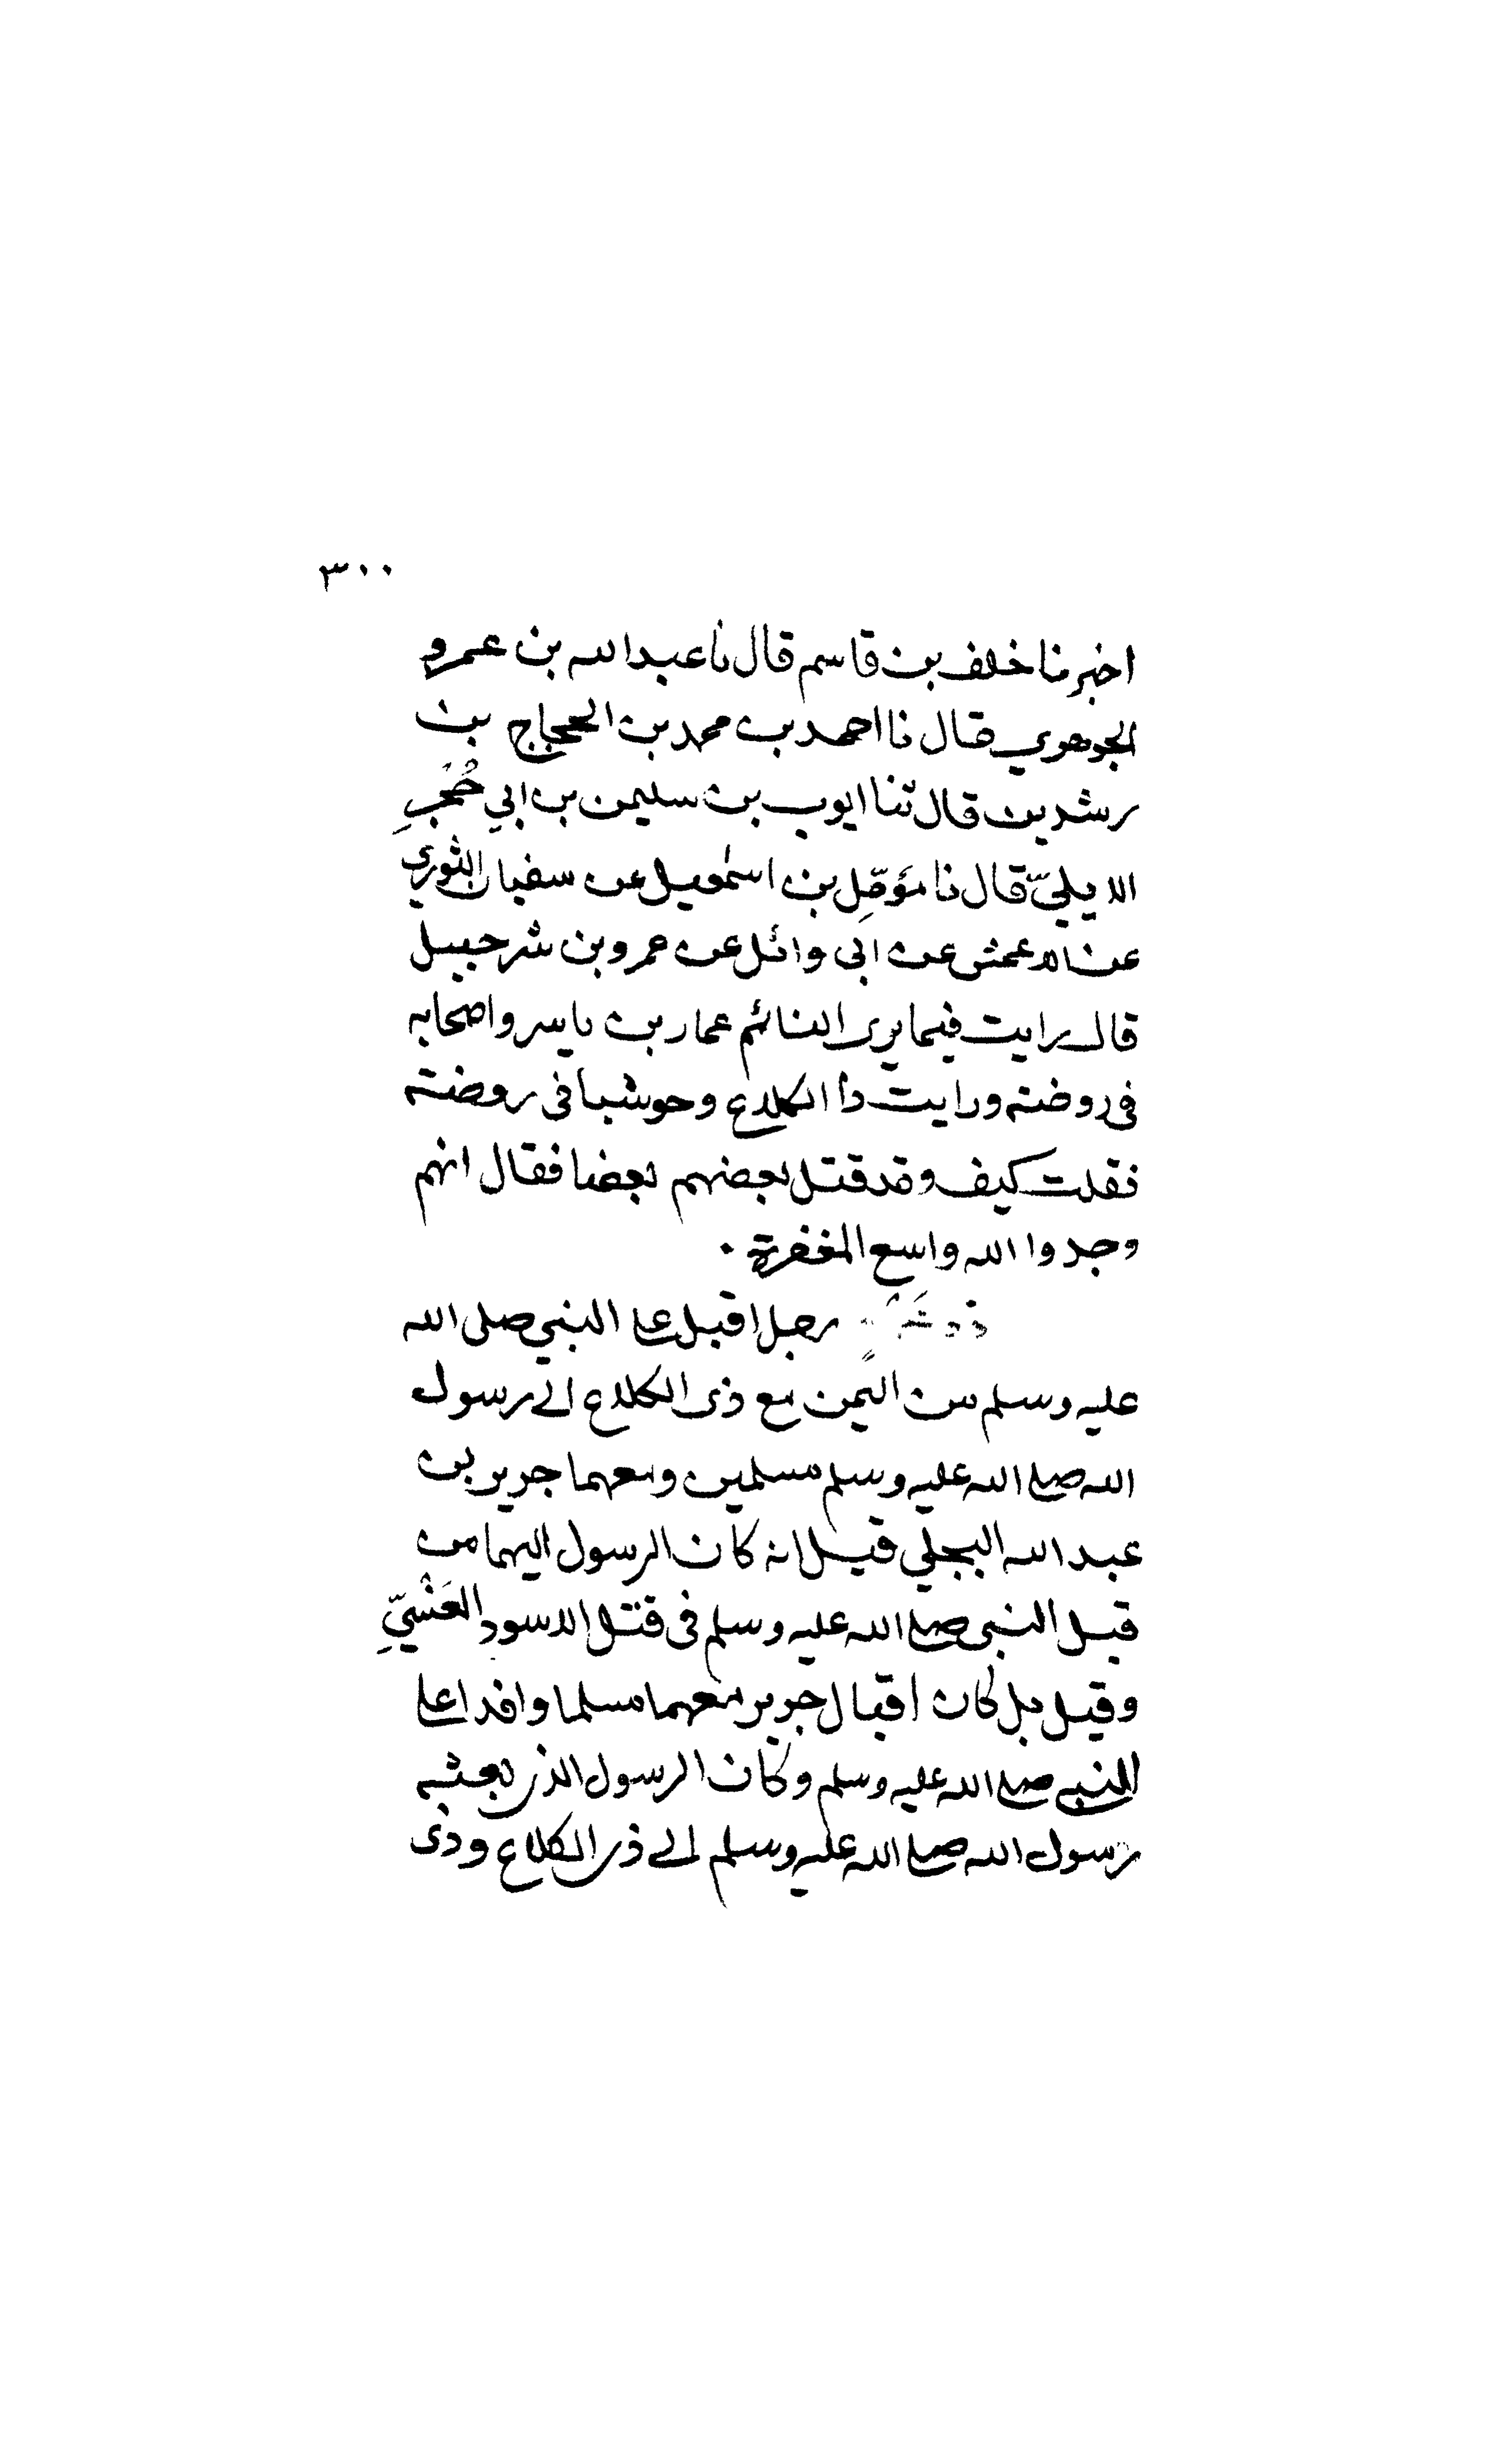 ٣٠٠
اخبرنا خلف بن قاسم قال نا عبد الله بن عمرو
الجوهري قال نا احمد بن محمد بن الحجاج بن
رشدين قال ثنا ايوب بن سليمن بن ابي حُجْرٍ
الايليّ قال نا مؤمّل بن اسمعيل عن سفيان الثوري
عن الاعمش عن ابى وائل عن عمرو بن شرحبيل
قال رايت فيما يرى النائم عمار بن ياسر واصحابه
فى روضة ورايت ذا الكلاع وحوشبا فى روضة
فقلت كيف وقد قتل بعضهم بعضا فقال انهم
وجدوا الله واسع المغفرة ٠
رجل اقبل على النبي صلى الله
عليه وسلم من اليمن مع ذى الكلاع الى رسول
الله صلى الله عليه وسلم مسلمين ومعهما جرير بن
عبد الله البجلي قيل انه كان الرسول اليهما من
قبل النبى صلى الله عليه وسلم فى قتل الاسود العَنْسيّ
وقيل بل كان اقبال جرير معهما مسلما وافدا على
النبي صلى الله عليه وسلم وكان الرسول الذى بعثه
رسول الله صلى الله عليه وسلم الى ذى الكلاع وذى